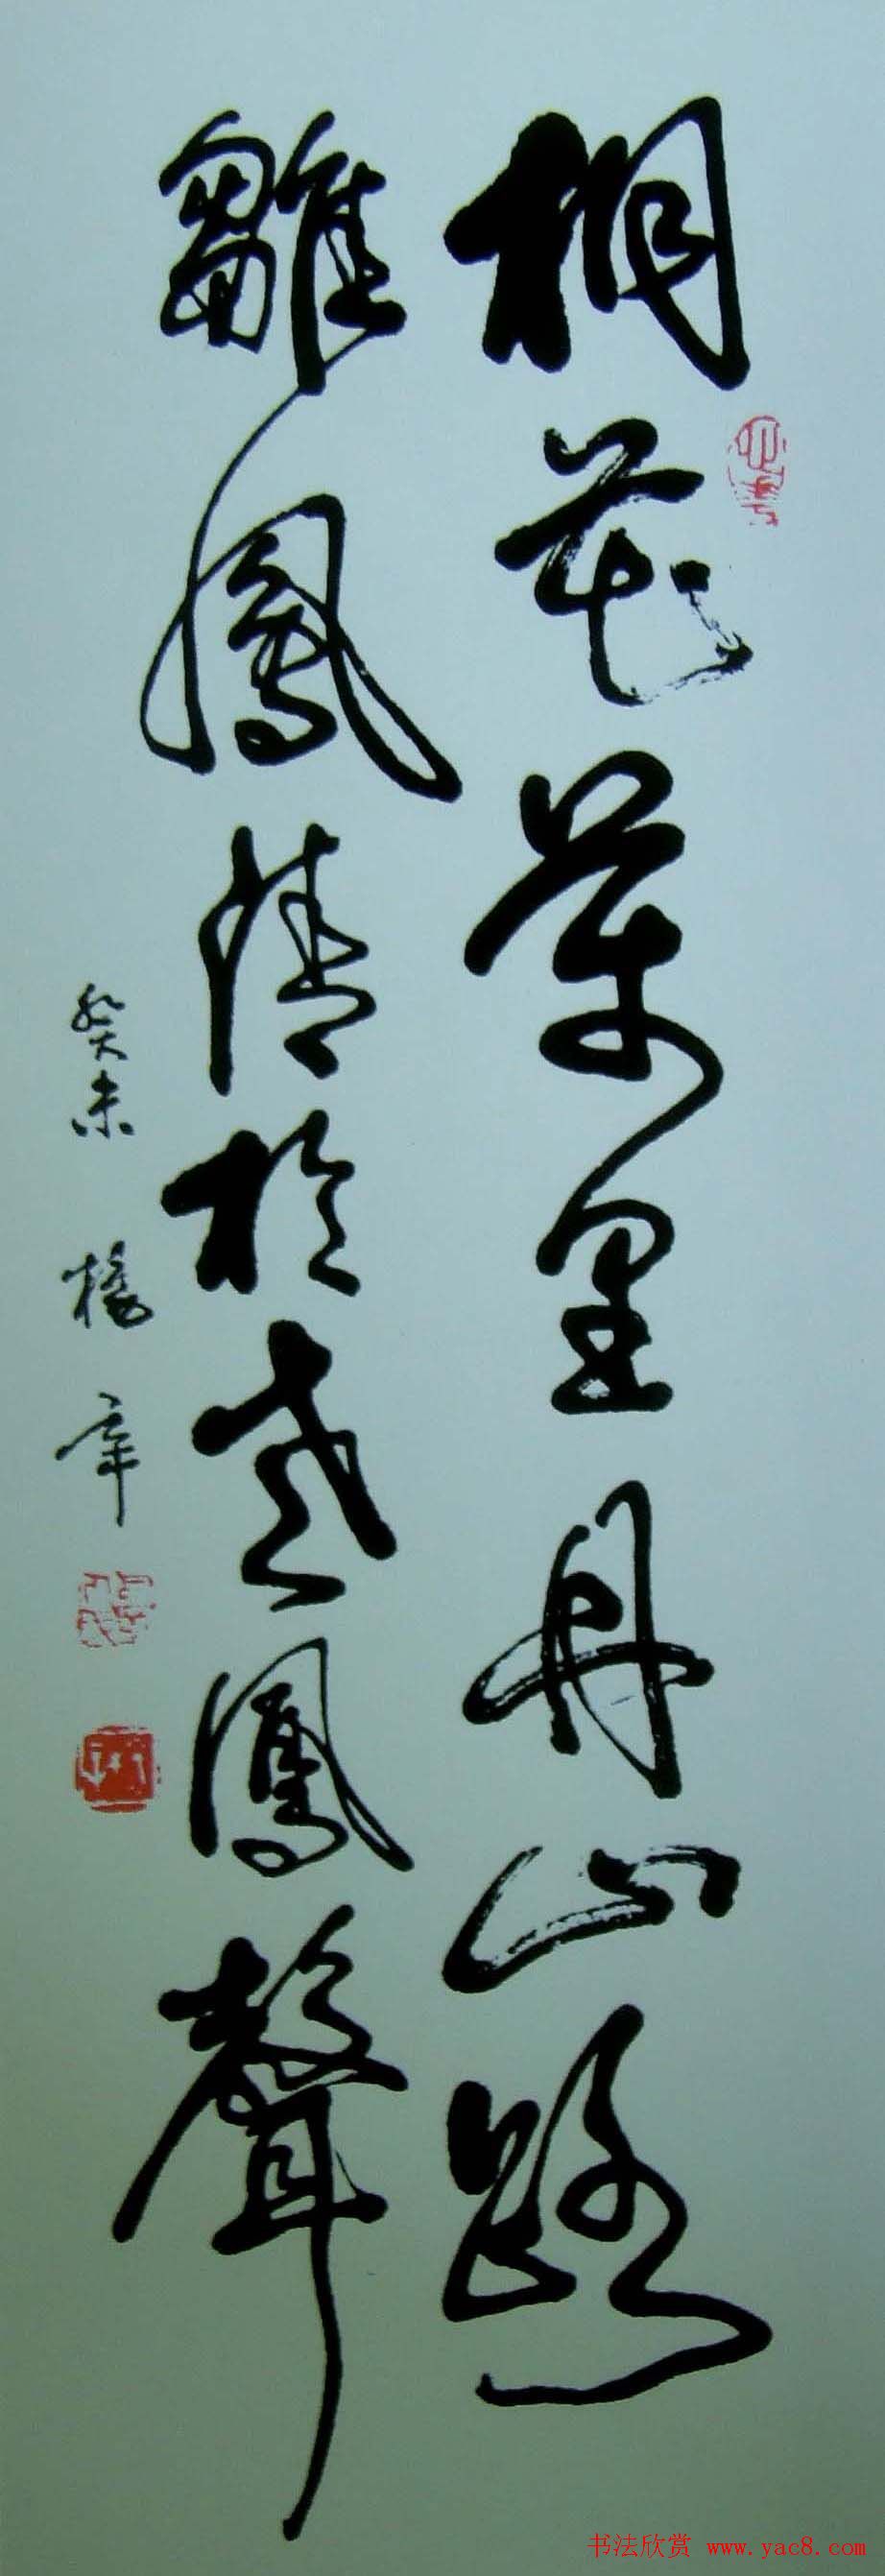 桐花萬里丹山路
雛鳳清於老鳳聲
癸未 楊辛
书法欣赏 www.yac8.com